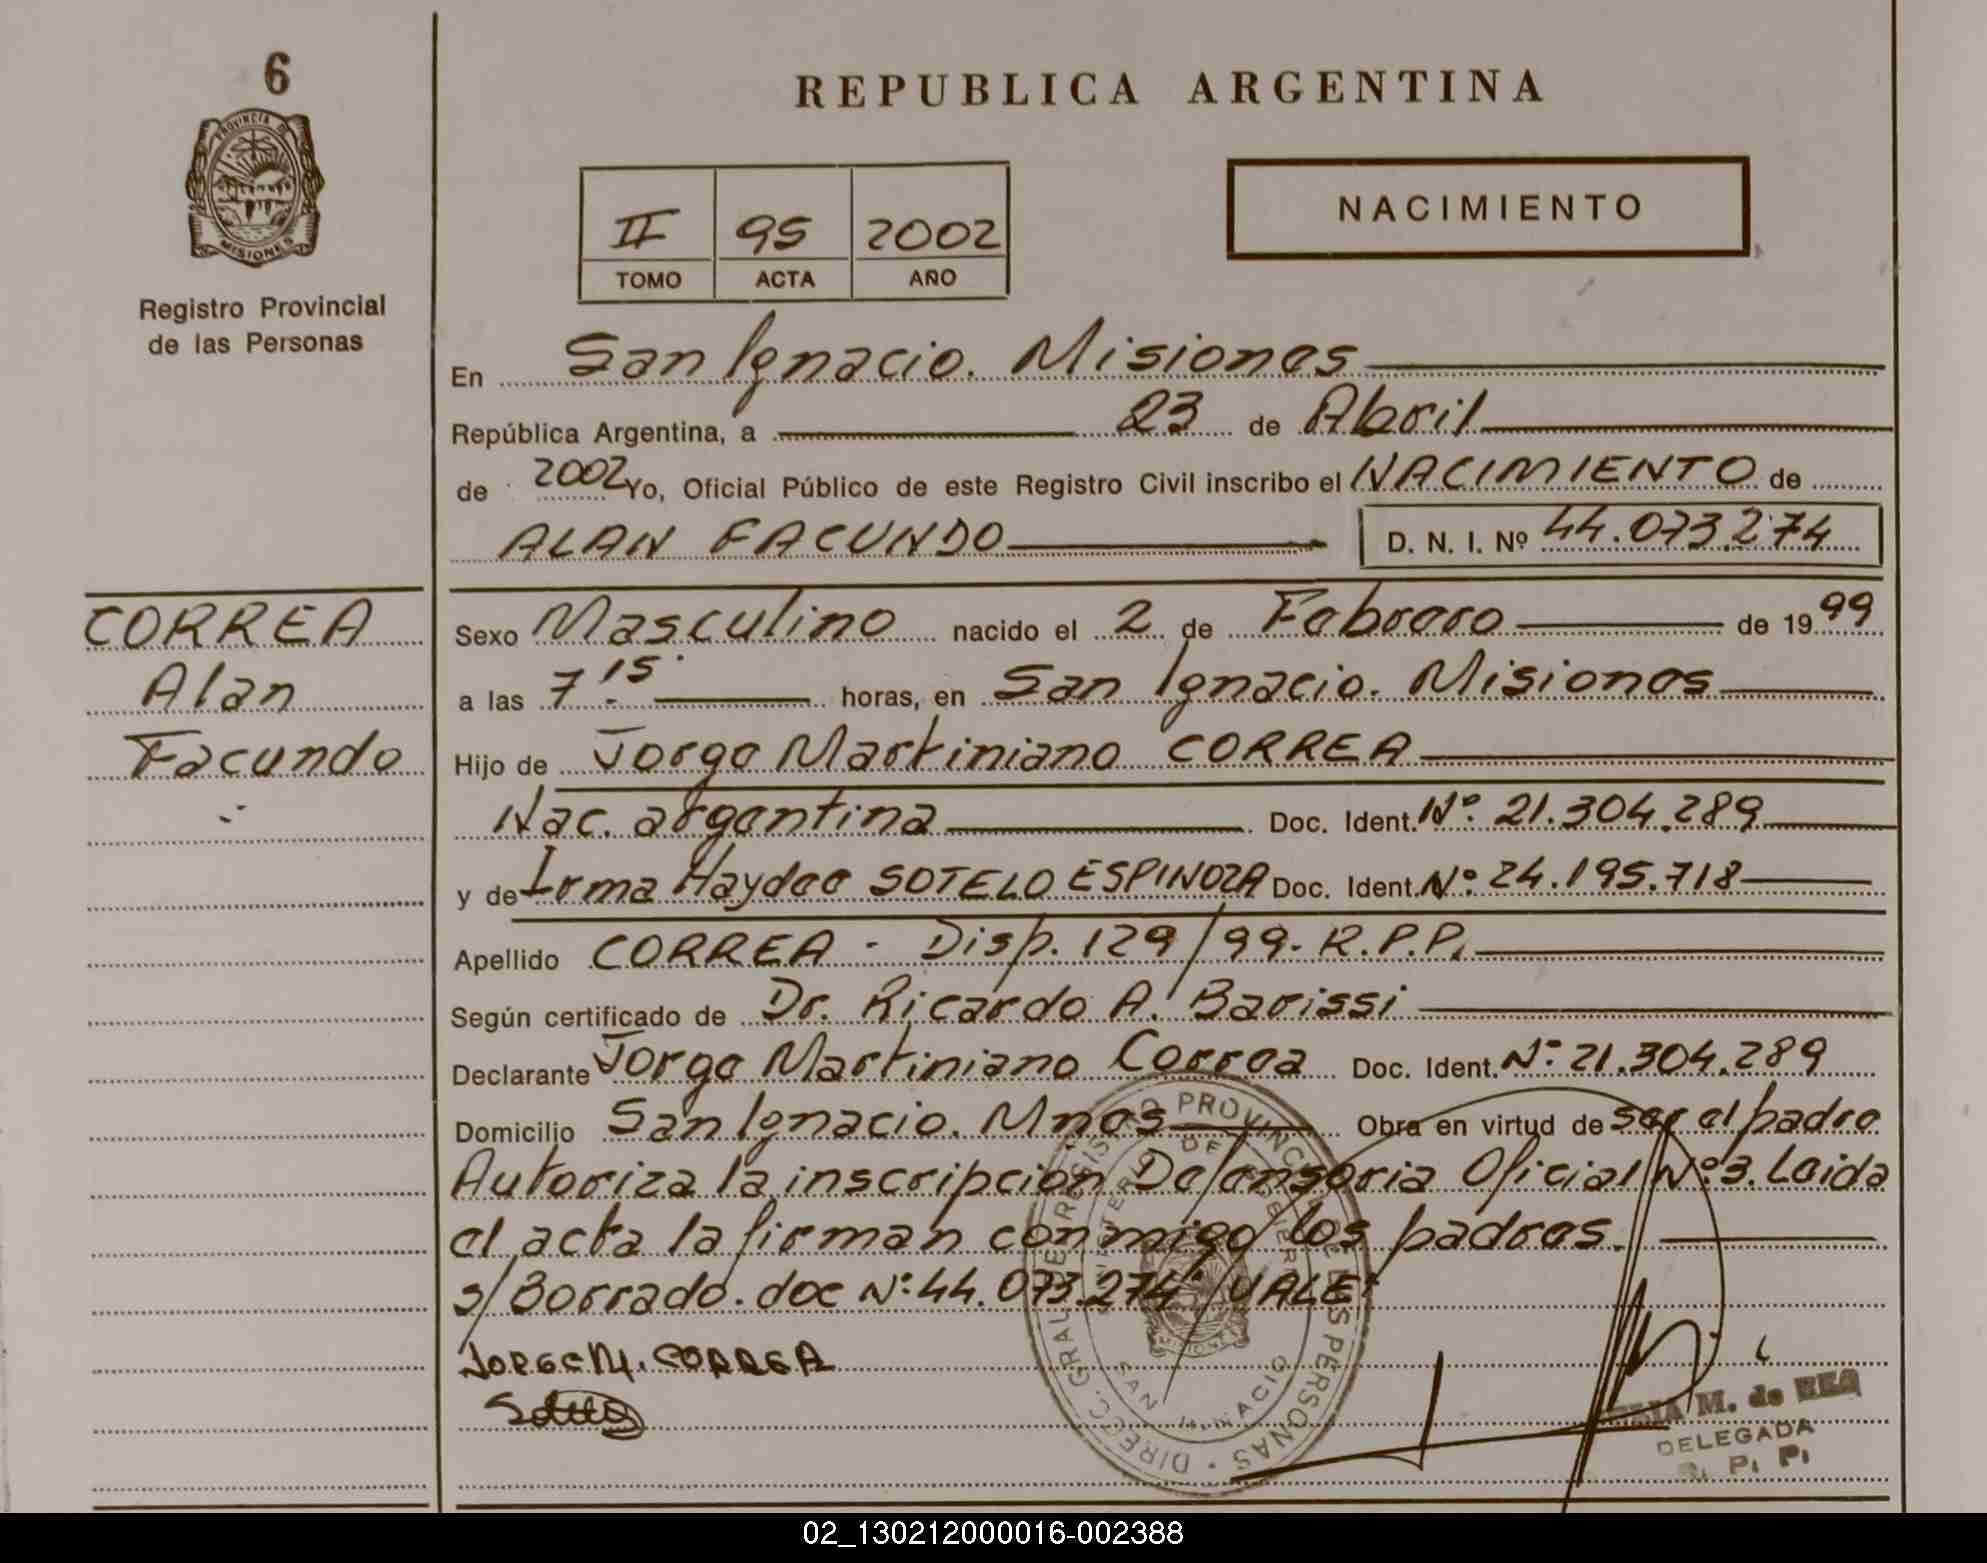 6
PROVINCIA DE
MISIONES
Registro Provincial
de las Personas
REPUBLICA ARGENTINA
II 95 2002
TOMO ACTA AÑO
NACIMIENTO
En San Ignacio. Misiones
República Argentina, a 23 de Abril
de 2002 Yo, Oficial Público de este Registro Civil inscribo el NACIMIENTO de
ALAN FACUNDO D. N. I. Nº 44.073.274
CORREA
Alan
Facundo
Sexo Masculino nacido el 2 de Febrero de 1999
a las 7.15 horas, en San Ignacio. Misiones
Hijo de Jorge Martiniano CORREA
Nac. argentina Doc. Ident. Nº. 21.304.289
y de Irma Haydee SOTELO ESPINOZA Doc. Ident. Nº 24.195.718
Apellido CORREA - Disp. 129/99- R.P.P.
Según certificado de Dr. Ricardo A. Barissi
Declarante Jorge Martiniano Correa Doc. Ident. Nº 21.304.289
Domicilio San Ignacio. Mnes Obra en virtud de ser el padre
Autoriza la inscripción Defensoria Oficial Nº3. Leida
el acta la firman conmigo los padres.
s/Borrado. doc Nº 44.073.274 "VALE"
JORGE M. CORREA
DIREC. GRAL. DE REGISTRO PROVINCIAL DE LAS PERSONAS
MINISTERIO DE GOBIERNO
SAN IGNACIO
M. de
DELEGADA
R. P. P.
02_130212000016-002388